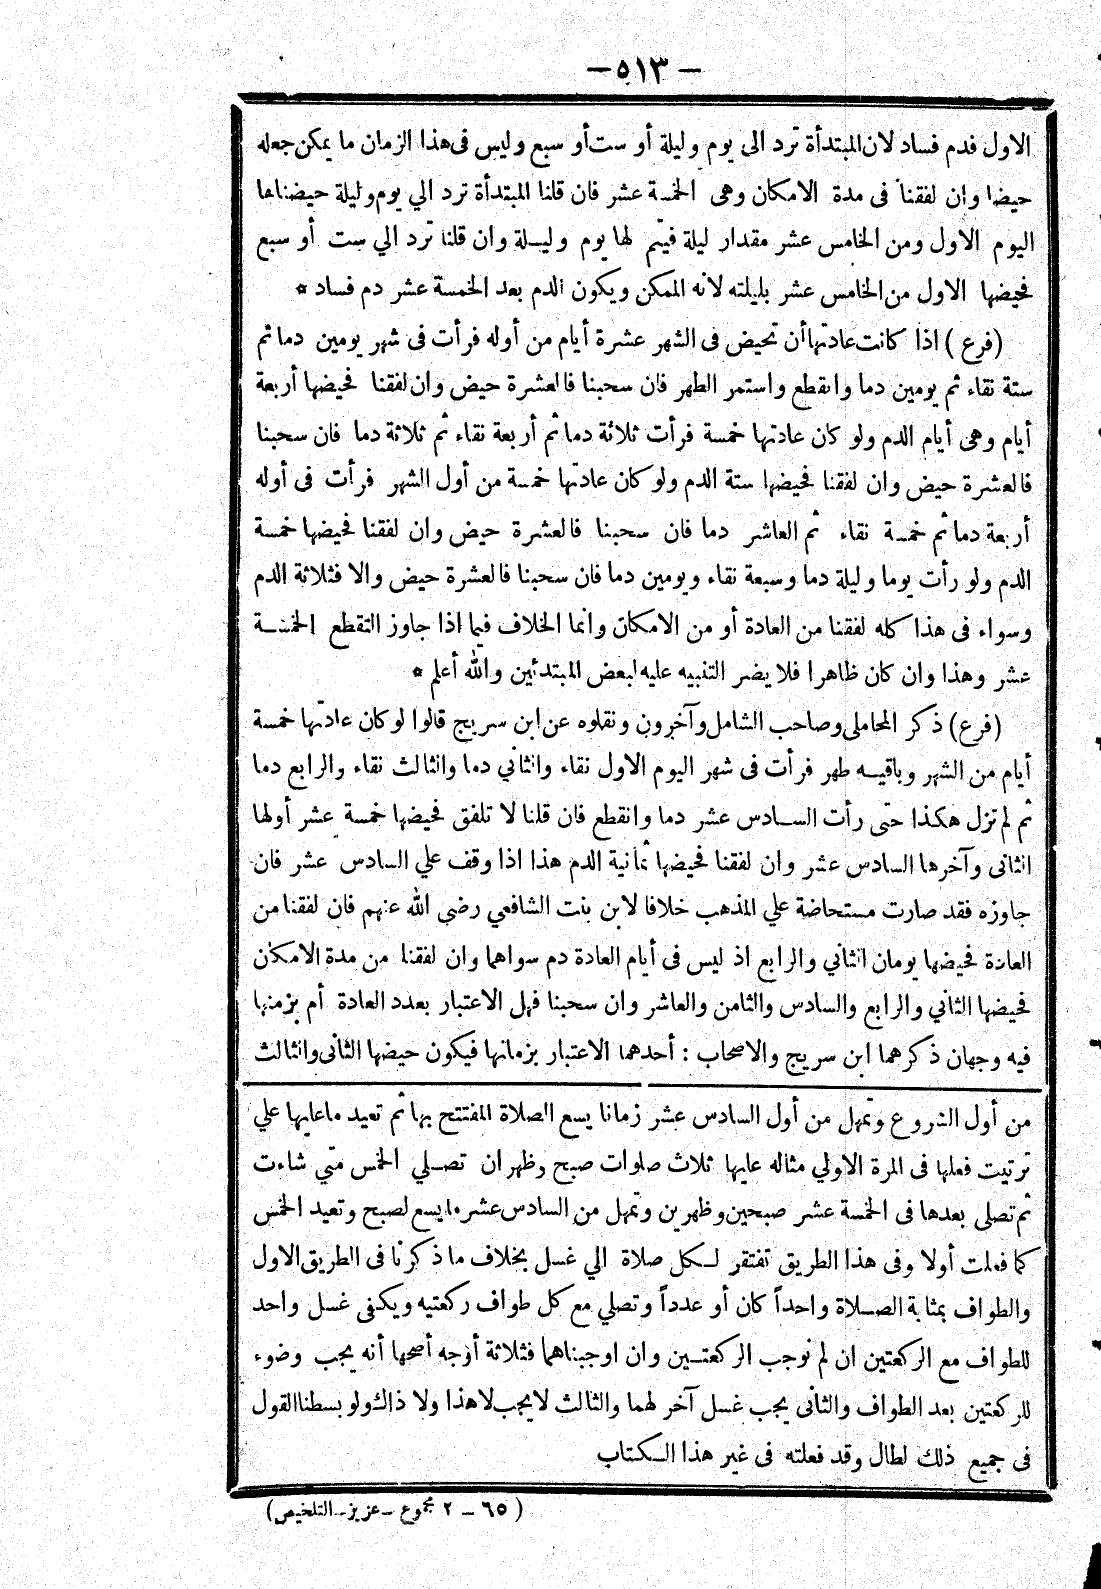 — ٥١٣ —
الاول فدم فساد لان المبتدأة ترد الى يوم وليلة أو ست أو سبع وليس فى هذا الزمان ما يمكن جعله
حيضا وان لفقنا فى مدة الامكان وهى الخمسة عشر فان قلنا المبتدأة ترد الي يوم وليلة حيضناها
اليوم الاول ومن الخامس عشر مقدار ليلة فيتم لها يوم وليلة وان قلنا ترد الي ست أو سبع
فحيضها الاول من الخامس عشر بليلته لانه الممكن ويكون الدم بعد الخمسة عشر دم فساد *
(فرع) اذا كانت عادتها أن تحيض فى الشهر عشرة أيام من أوله فرأت فى شهر يومين دما ثم
ستة نقاء ثم يومين دما وانقطع واستمر الطهر فان سحبنا فالعشرة حيض وان لفقنا فحيضها أربعة
أيام وهى أيام الدم ولو كان عادتها خمسة فرأت ثلاثة دما ثم أربعة نقاء ثم ثلاثة دما فان سحبنا
فالعشرة حيض وان لفقنا فحيضها ستة الدم ولو كان عادتها خمسة من أول الشهر فرأت فى أوله
أربعة دما ثم خمسة نقاء ثم العاشر دما فان سحبنا فالعشرة حيض وان لفقنا فحيضها خمسة
الدم ولو رأت يوما وليلة دما وسبعة نقاء ويومين دما فان سحبنا فالعشرة حيض والا فثلاثة الدم
وسواء فى هذا كله لفقنا من العادة أو من الامكان وانما الخلاف فيما اذا جاوز التقطع الخمسة
عشر وهذا وان كان ظاهرا فلا يضر التنبيه عليه لبعض المبتدئين والله أعلم *
(فرع) ذكر المحاملى وصاحب الشامل وآخرون ونقلوه عن ابن سريج قالوا لو كان عادتها خمسة
أيام من الشهر وباقيه طهر فرأت فى شهر اليوم الاول نقاء والثاني دما والثالث نقاء والرابع دما
ثم لم تزل هكذا حتى رأت السادس عشر دما وانقطع فان قلنا لا تلفق فحيضها خمسة عشر أولها
الثانى وآخرها السادس عشر وان لفقنا فحيضها ثمانية الدم هذا اذا وقف علي السادس عشر فان
جاوزه فقد صارت مستحاضة علي المذهب خلافا لابن بنت الشافعي رضى الله عنهم فان لفقنا من
العادة فحيضها يومان الثاني والرابع اذ ليس فى أيام العادة دم سواهما وان لفقنا من مدة الامكان
فحيضها الثاني والرابع والسادس والثامن والعاشر وان سحبنا فهل الاعتبار بعدد العادة أم بزمنها
فيه وجهان ذكرهما ابن سريج والاصحاب : أحدهما الاعتبار بزمانها فيكون حيضها الثانى والثالث
من أول الشروع وتمهل من أول السادس عشر زمانا يسع الصلاة المفتتح بها ثم تعيد ما عليها علي
ترتيت فعلها فى المرة الاولي مثاله عليها ثلاث صلوات صبح وظهران تصلي الخمس متي شاءت
ثم تصلى بعدها فى الخمسة عشر صبحين وظهرين وتمهل من السادس عشر ما يسع لصبح وتعيد الخمس
كما فعلت أولا وفى هذا الطريق تفتقر لكل صلاة الي غسل بخلاف ما ذكرنا فى الطريق الاول
والطواف بمثابة الصلاة واحداً كان أو عدداً وتصلي مع كل طواف ركعتيه ويكفى غسل واحد
للطواف مع الركعتين ان لم نوجب الركعتين وان اوجبناهما فثلاثة أوجه أصحها أنه يجب وضوء
للركعتين بعد الطواف والثانى يجب غسل آخر لهما والثالث لا يجب لا هذا ولا ذاك ولو بسطنا القول
فى جميع ذلك لطال وقد فعلته فى غير هذا الكتاب
(٦٥ – ٢ مجموع – عزيز – التلخيص)